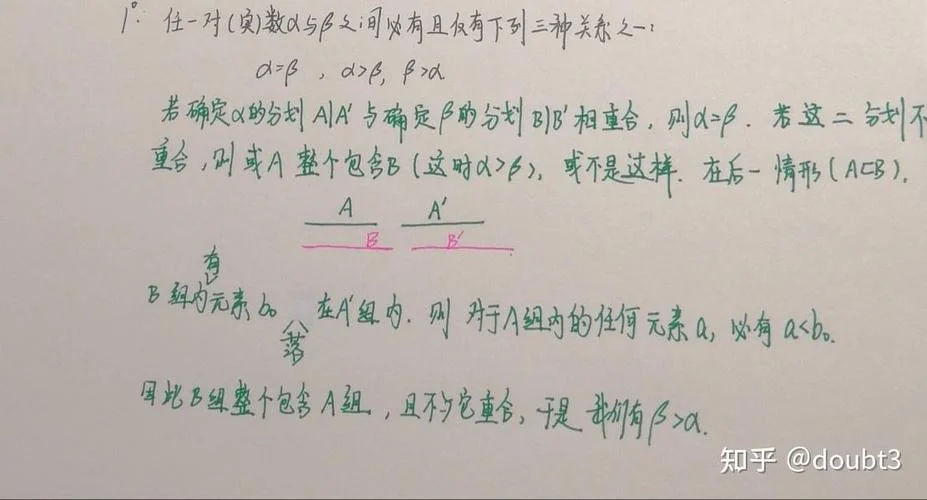 1°: 任一对(实)数α与β之间必有且仅有下列三种关系之一:
α=β , α>β, β>α
若确定α的分划A|A'与确定β的分划B|B'相重合, 则α=β. 若这二分划不
重合, 则或A整个包含B(这时α>β), 或不是这样. 在后一情形(A⊂B).
A A'
B B'
有
B组内元素b₀ 在A'组内. 则对于A组内的任何元素a, 必有a<b₀.
落
因此B组整个包含A组, 且不与它重合, 于是我们有β>α.
知乎 @doubt3